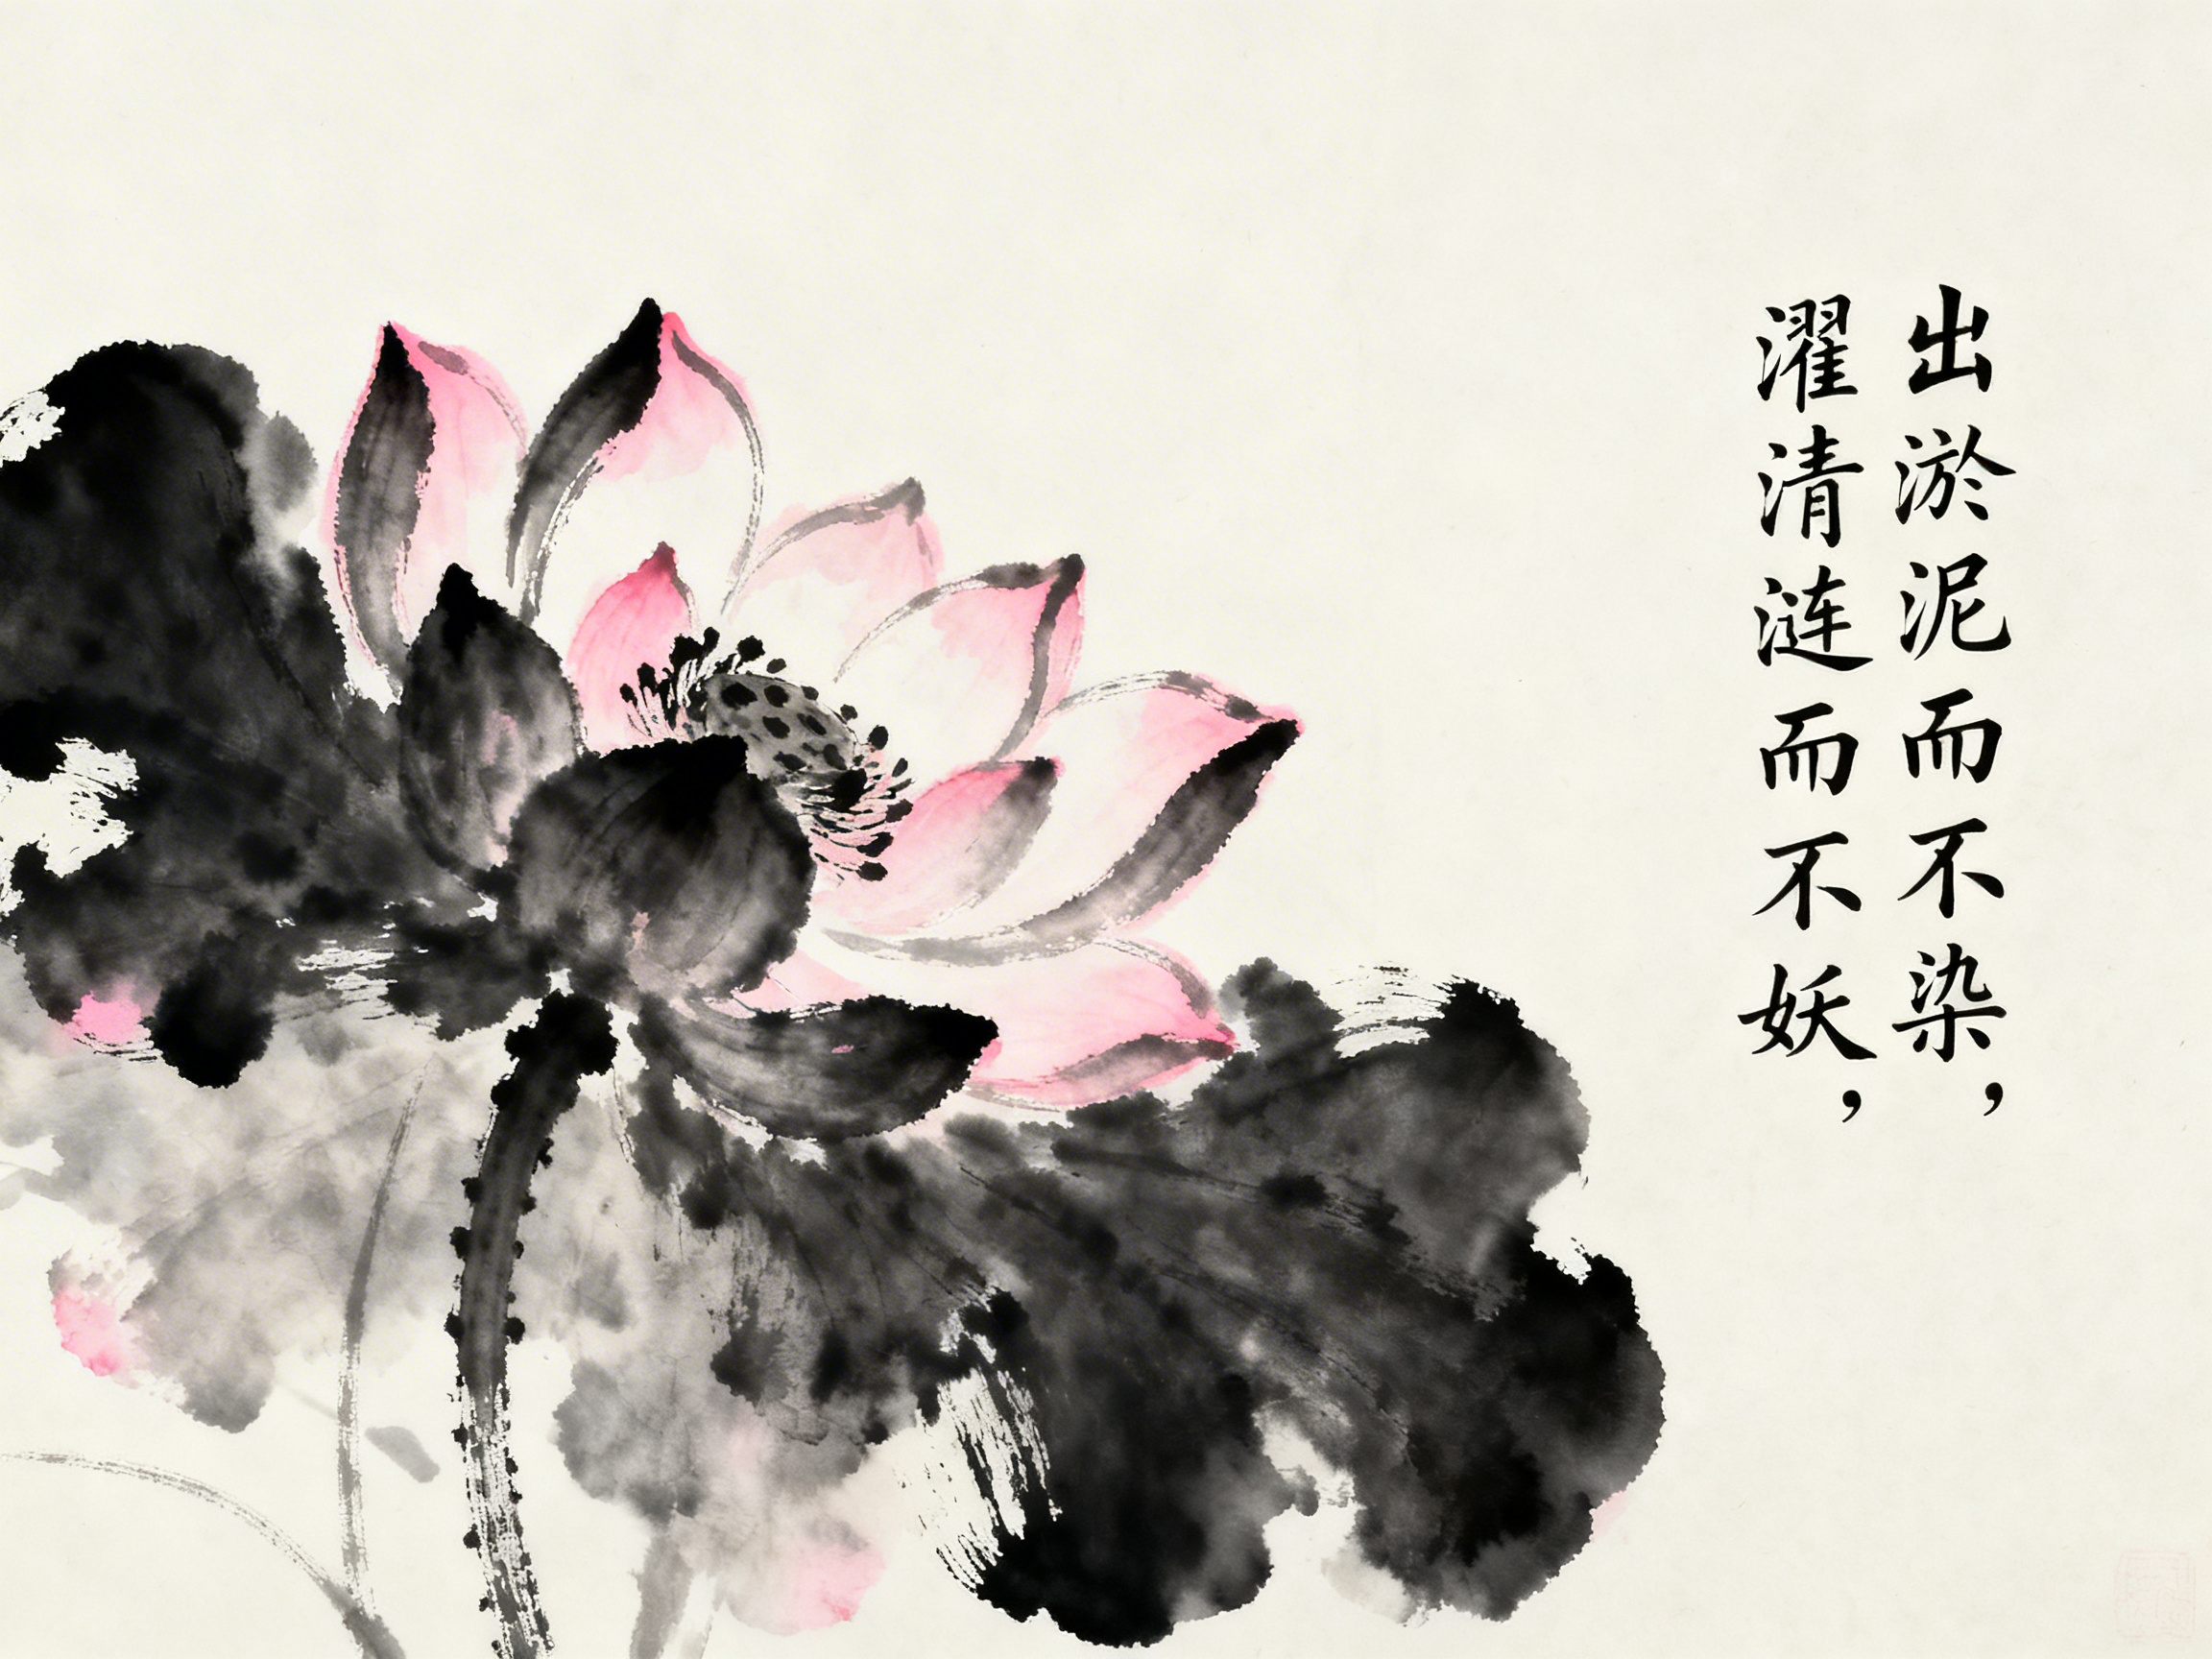 出淤泥而不染，
濯清涟而不妖，